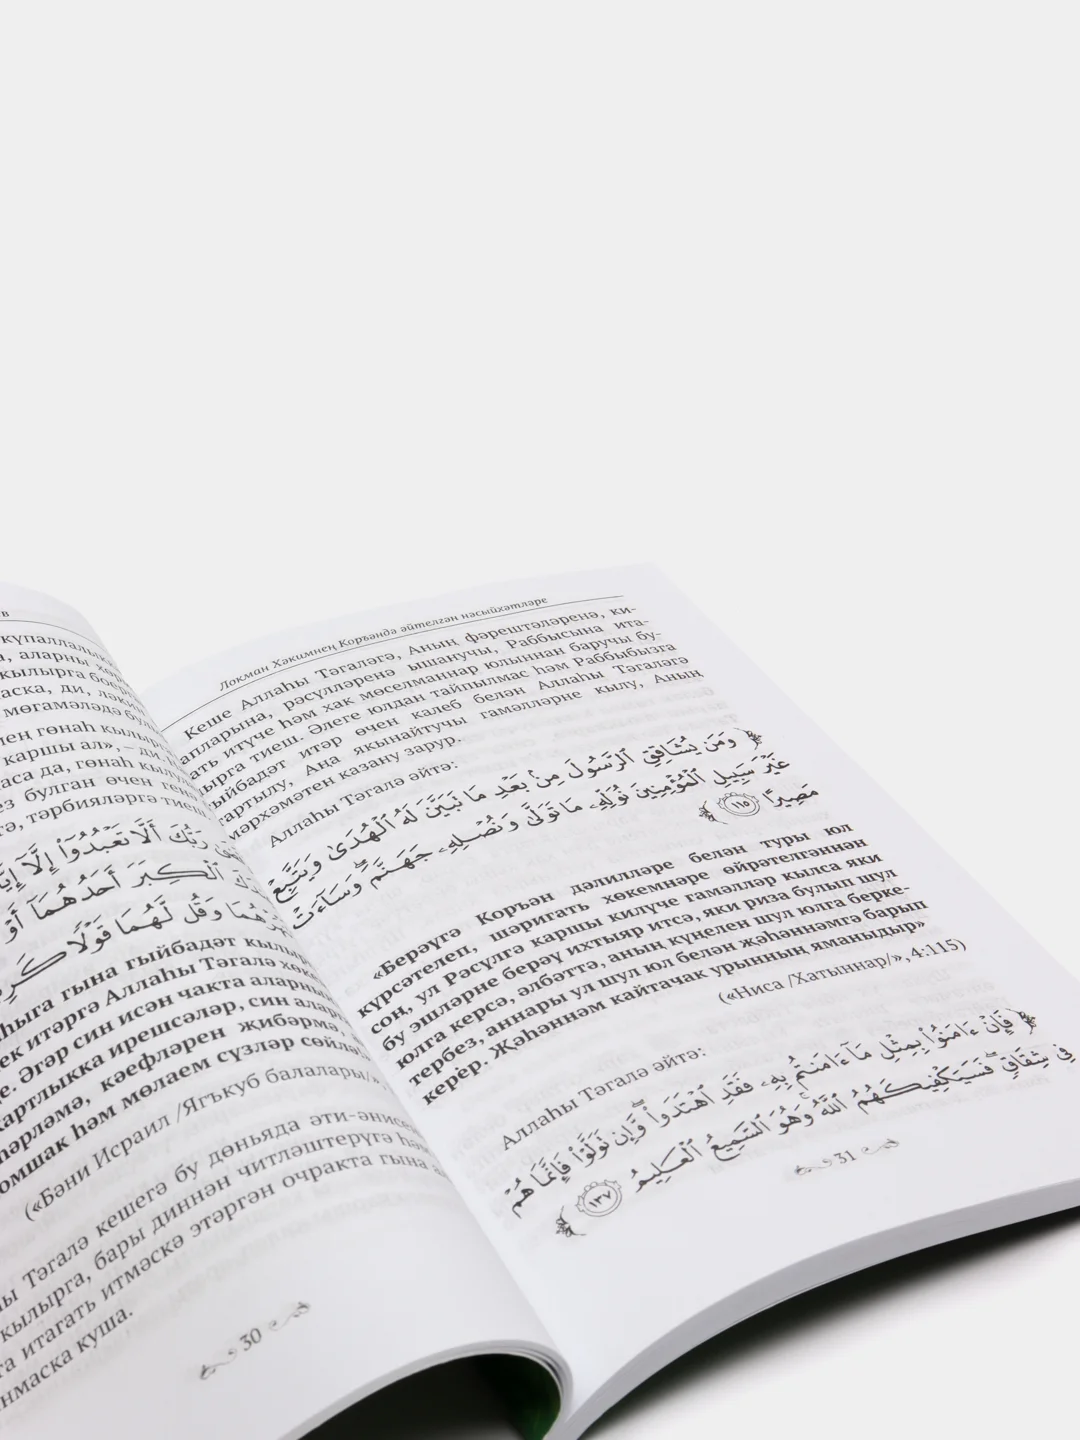 в
күпаллалык
аларны
кылырга
маска, ди, ләкин
мөгамәләдә
гөнаһ кылырга
каршы ал», – ди.
са да, гөнаһ кылу
булган өчен генә
тәрбияләргә тиеш
رَبُّكَ أَلَّا تَعْبُدُوٓا۟ إِلَّآ
ٱلْكِبَرَ أَحَدُهُمَآ أَوْ
وَقُل لَّهُمَا قَوْلًا
гына гыйбадәт
итәргә Аллаһы Тәгалә
Әгәр син исән чакта аларның
картлыкка ирешсәләр, син
кәефләрен җибәрмә,
һәм мөлаем сүзләр
(«Бәни Исраил /Ягъкуб балалары/»,
Тәгалә кешегә бу дөньяда
кылырга, бары диннән читләштерүгә
итагать итмәскә этәргән очракта гына
куша.
30
Локман Хәкимнең Коръәндә әйтелгән нәсыйхәтләре
Кеше Аллаһы Тәгаләгә, Аның фәрештәләренә, ки-
апларына, рәсүлләренә ышанучы, Раббысына ита-
ать итүче һәм хак мөселманнар юлыннан баручы бу-
ырга тиеш. Әлеге юлдан тайпылмас һәм Раббыбызга
ыйбадәт итәр өчен калеб белән Аллаһы Тәгаләгә
артылу, Аңа якынайтучы гамәлләрне кылу, Аның
мәрхәмәтен казану зарур.
Аллаһы Тәгалә әйтә:
وَمَن يُشَاقِقِ ٱلرَّسُولَ مِنۢ بَعْدِ مَا تَبَيَّنَ لَهُ ٱلْهُدَىٰ وَيَتَّبِعْ
غَيْرَ سَبِيلِ ٱلْمُؤْمِنِينَ نُوَلِّهِۦ مَا تَوَلَّىٰ وَنُصْلِهِۦ جَهَنَّمَ ۖ وَسَآءَتْ
مَصِيرًا ١١٥
«Берәүгә Коръән дәлилләре белән туры юл
күрсәтелеп, шәригать хөкемнәре өйрәтелгәннән
соң, ул Рәсүлгә каршы килүче гамәлләр кылса яки
бу эшләрне берәү ихтыяр итсә, яки риза булып шул
юлга керсә, әлбәттә, аның күңелен шул юлга берке-
тербез, аннары ул шул юл белән җәһәннәмгә барып
керер. Җәһәннәм кайтачак урынның яманыдыр»
(«Ниса /Хатыннар/», 4:115)
Аллаһы Тәгалә әйтә:
فَإِنْ ءَامَنُوا۟ بِمِثْلِ مَآ ءَامَنتُم بِهِۦ فَقَدِ ٱهْتَدَوا۟ ۖ وَّإِن تَوَلَّوْا۟ فَإِنَّمَا هُمْ
فِى شِقَاقٍ ۖ فَسَيَكْفِيكَهُمُ ٱللَّهُ ۚ وَهُوَ ٱلسَّمِيعُ ٱلْعَلِيمُ ١٣٧
31